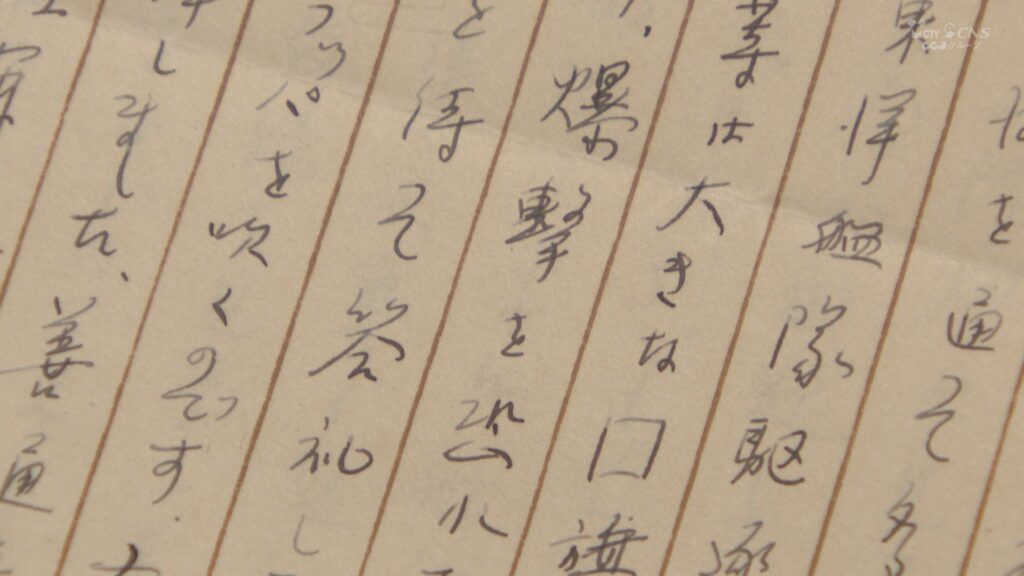 を通って多
東洋艦隊駆逐
等は大きな口旗
、爆撃を恐れ
を待って答礼し
ラッパを吹くのです.
しました、善通
CTY CNS
CCJグループ